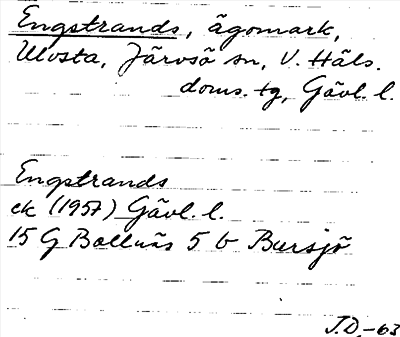 Engstrands, ägomark,
Ulvsta, Järvsö sn, V. Häls.
doms. tg, Gävl. l.
Engstrands
ek (1957) Gävl. l.
15 G Bollnäs 5 b Bursjö
J.D. -63